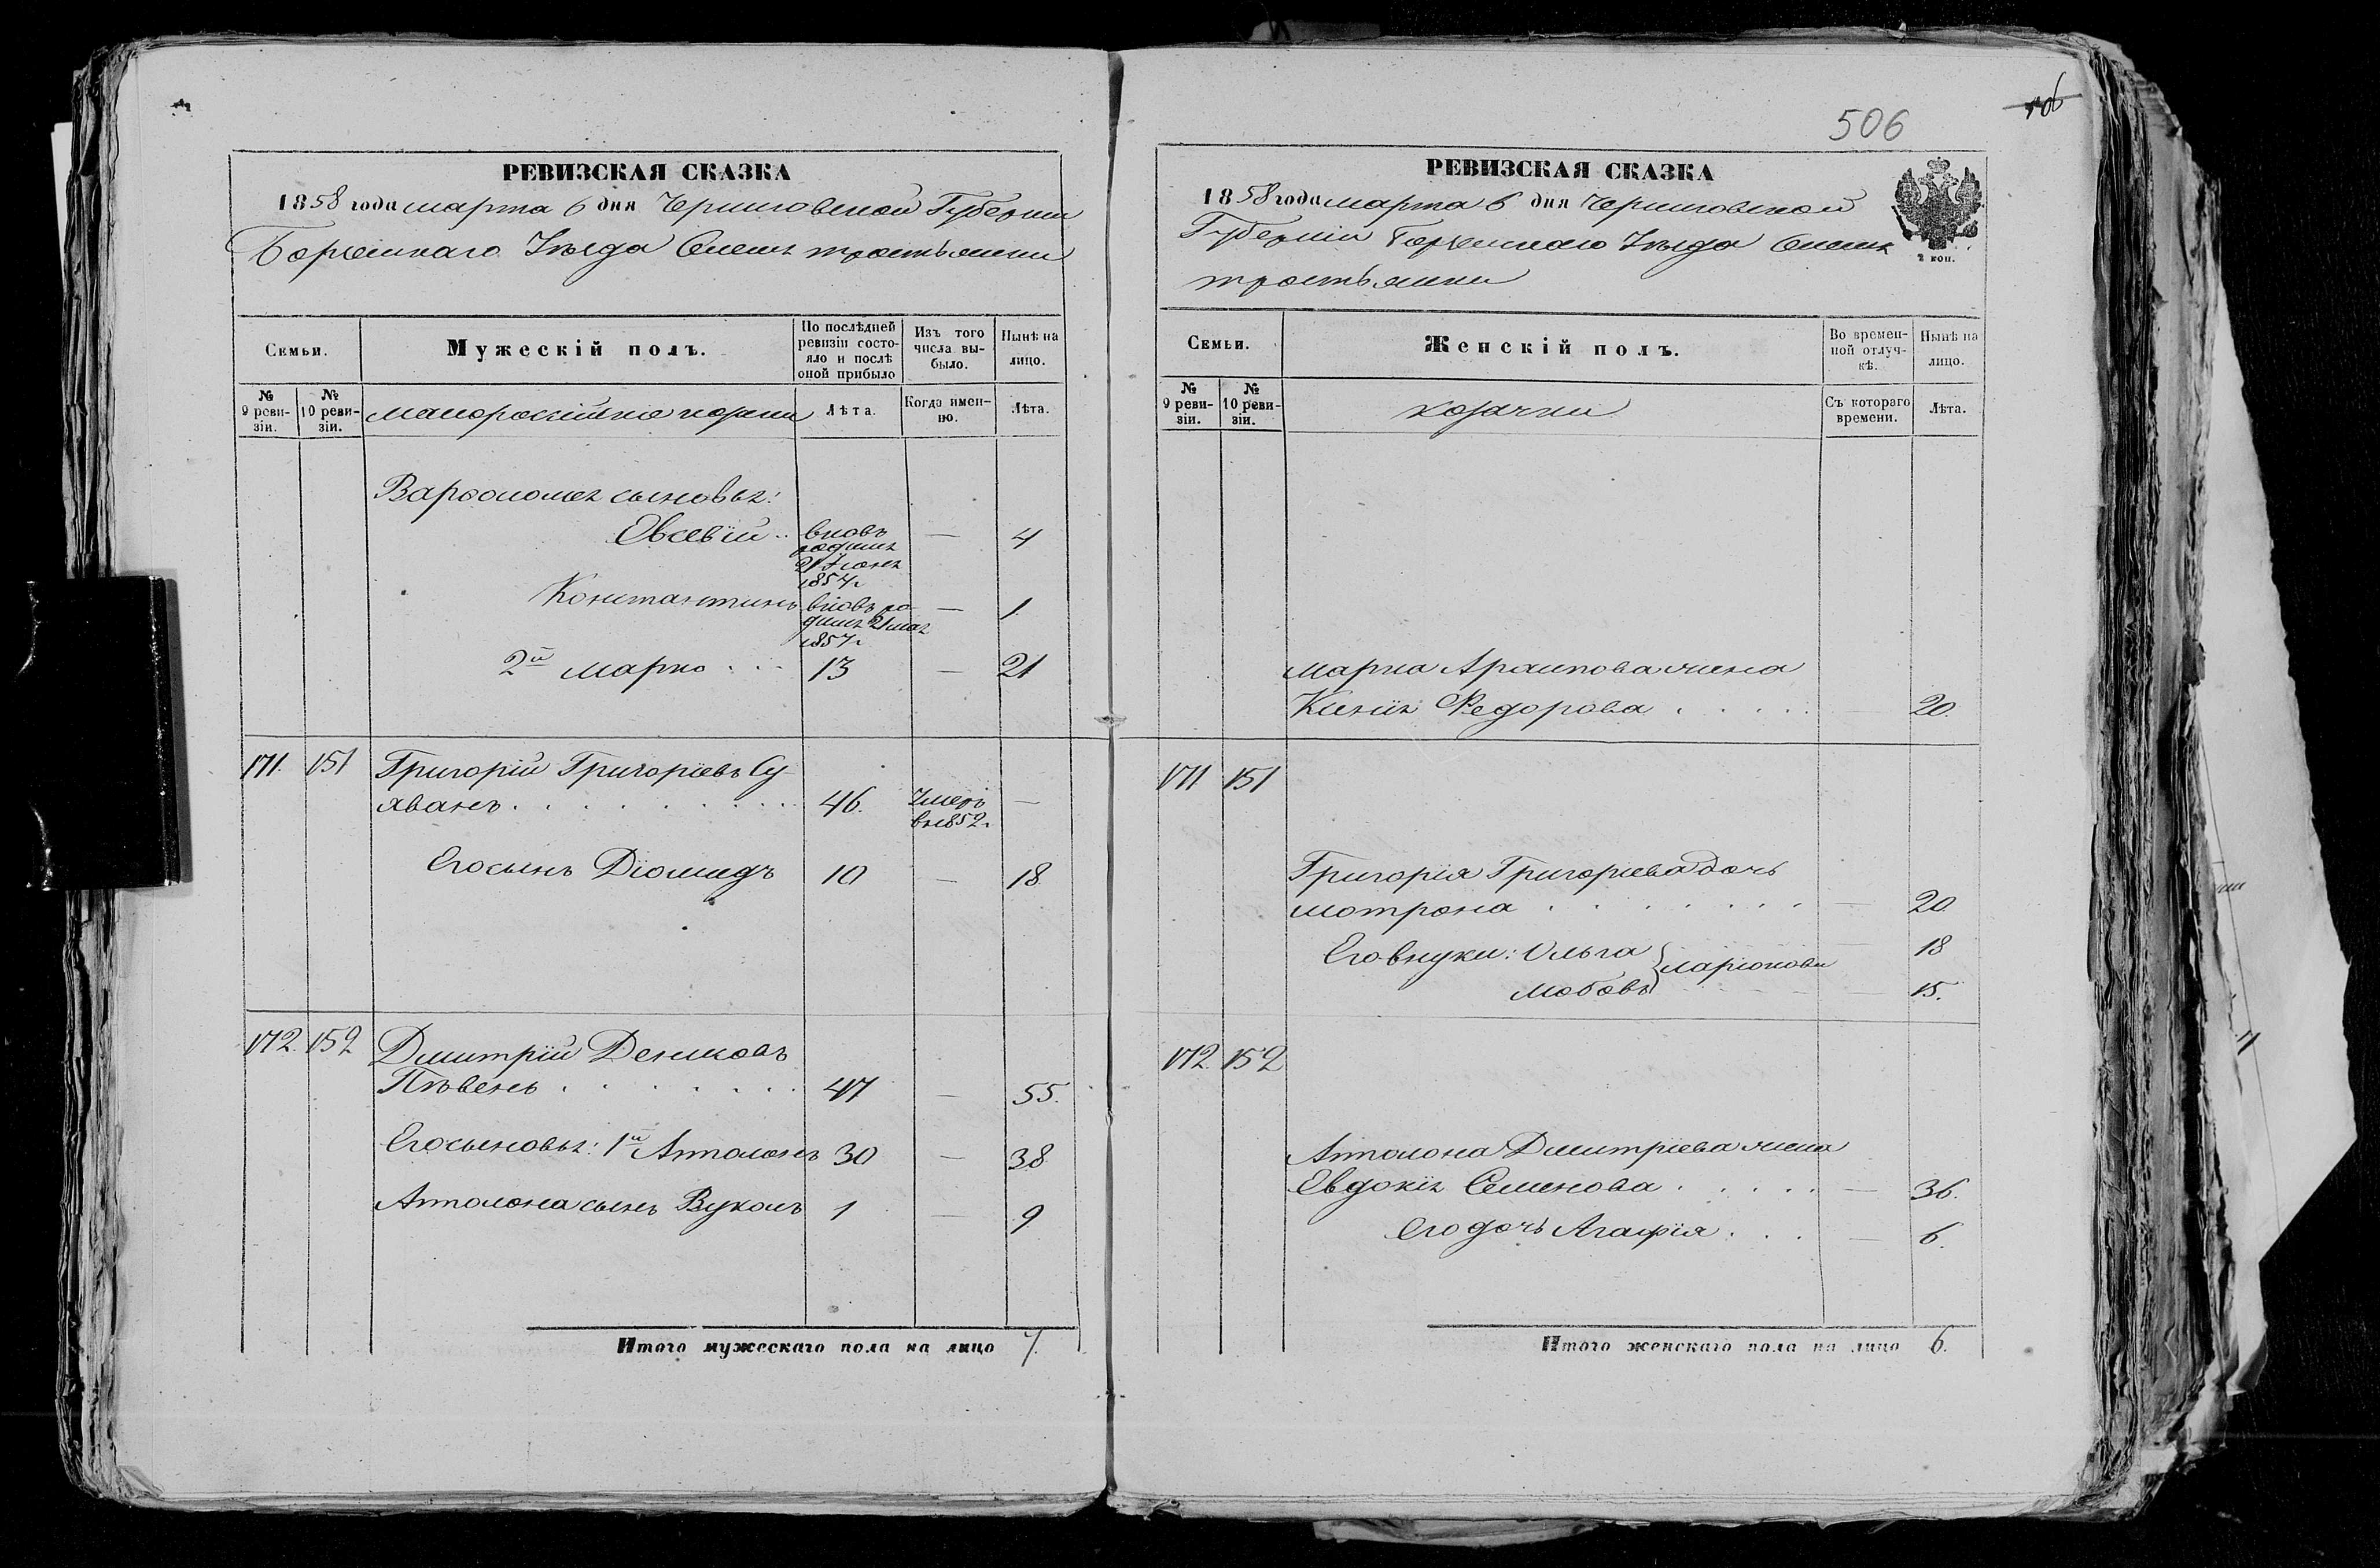 РЕВИЗСКАЯ СКАЗКА
1858 года марта 6 дня Черниговской Губернии
Борзенскаго Уѣзда
Семьи.
Мужескій полъ.
По послѣдней ревизіи состояло и послѣ оной прибыло
Изъ того числа выбыло.
Нынѣ на лицо.
№ 9 ревизіи.
№ 10 ревизіи.
малороссійскіе козаки
Лѣта.
Когда именно.
Лѣта.
Варфоломея сыновья:
Евсевій вновь — 4
родился
21 Іюня
1854 г.
Константинъ вновь ро- — 1.
дился 21 мая
1857 г.
2й Марко 13 — 21
171. 151 Григорій Григоріевъ Су-
хванъ 46. Умеръ —
в 1852 г.
Его сынъ Діомидъ 10 — 18
172. 152 Дмитрій Денисовъ
Пѣвень 47 — 55.
Его сыновья: 1й Апполонъ 30 — 38
Апполона сынъ Вуколъ 1 — 9
Итого мужескаго пола на лицо 7.
506
106
РЕВИЗСКАЯ СКАЗКА
1858 года марта 6 дня Черниговской
Губерніи Борзенскаго Уѣзда
2 коп.
Семьи.
Женскій полъ.
Во временной отлучкѣ.
Нынѣ на лицо.
№ 9 ревизіи.
№ 10 ревизіи.
козачки
Съ котораго времени.
Лѣта.
Марка Архипова жена
Ксенія Федорова — 20.
171 151
Григорія Григоріева дочь
Мотрона — 20
Его внуки: Ольга 18
Ларіоновы
Любовь — 15.
172. 152
Апполона Дмитріева жена
Евдокія Семенова — 36.
Его дочь Агафія — 6.
Итого женскаго пола на лицо 6.